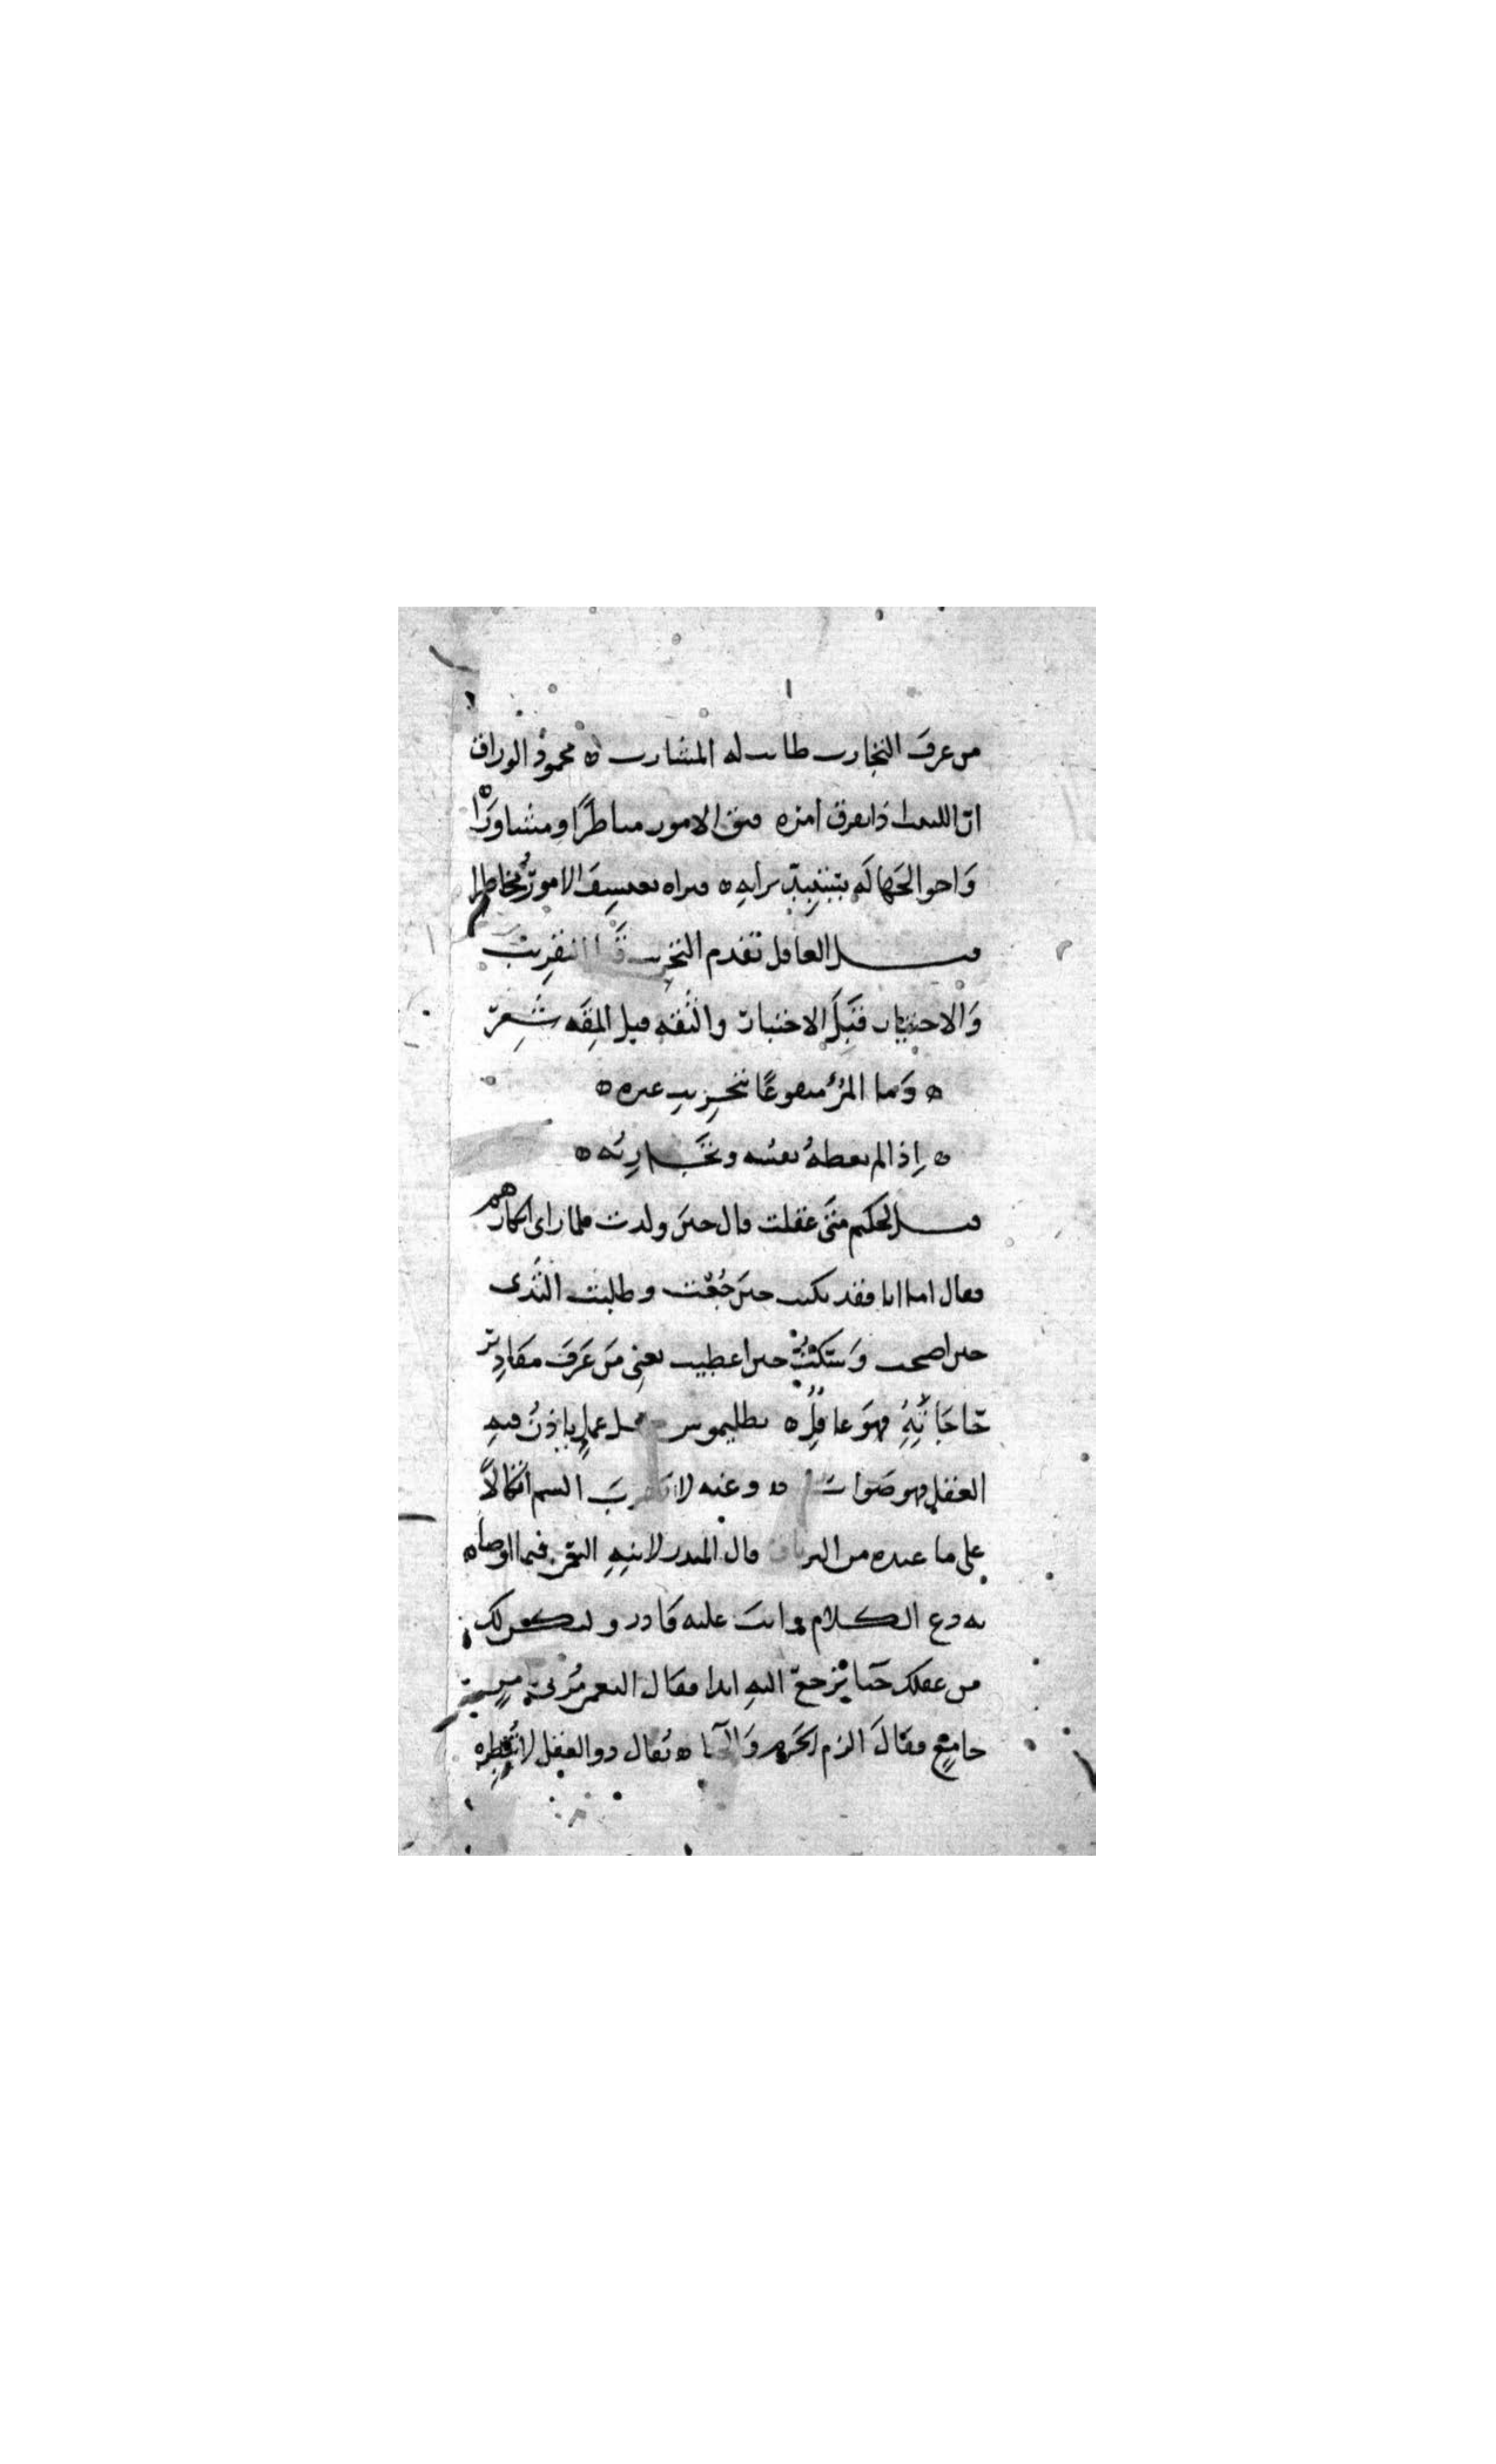 من عرف التجارب طابت له المشارب ه محمود الوراق
ان اللبيب اذا تفرق امره فتق الامور مناظرا ومشاورا
واخو الجهالة يستبد برايه ه فتراه يعتسف الامور مخاطرا
قيل العاقل تقدم التجريب التقريب
والاختيار قبل الاختبار والثقه قبل المقه شعر
ه وما المرء منفوعا بتجريب غيره ه
ه إذا لم يعظه نفسه وتجاربه ه
قيل لحكيم متى عقلت قال حين ولدت فلما راى انكارهم
فقال اما انا فقد بكيت حين جعت وطلبت الثدى
حين احتجت وسكت حين اعطيت يعنى من عرف مقادير
حاجاته فهو عاقل ه بطليموس كل عمل ياذن فيه
العقل فهو صواب ه وعنه لا تشرب السم اتكالا
على ما عندك من الترياق قال المنذر لابنه النعمن فيما اوصاه
به دع الكلام وانت عليه قادر وليكن لك
من عقلك خبا يرجع اليه ابدا فقال النعمن مرنى
جامع فقال الزم الحزم والحيا ه يقال ذو العقل لا تبطره